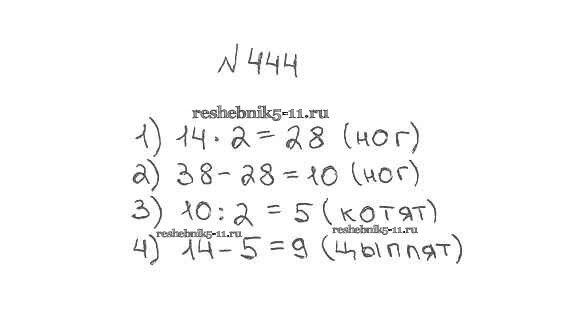 N 444
reshebnik5-11.ru
1) 14 · 2 = 28 (ног)
2) 38 - 28 = 10 (ног)
3) 10 : 2 = 5 (котят)
reshebnik5-11.ru reshebnik5-11.ru
4) 14 - 5 = 9 (цыплят)